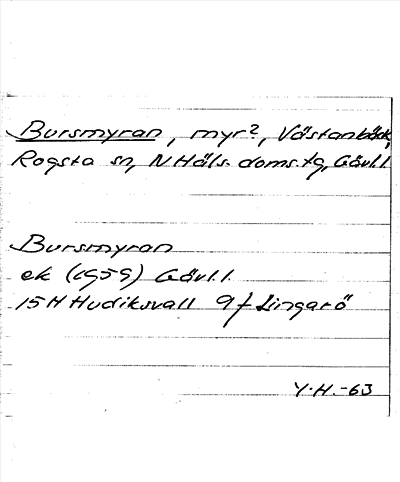 Bursmyran, myr?, Västanbäck,
Rogsta sn, N Häls. doms. tg, Gävl. l
Bursmyran
ek (1959) Gävl. l.
15H Hudiksvall 9f Lingarö
Y.H.-63